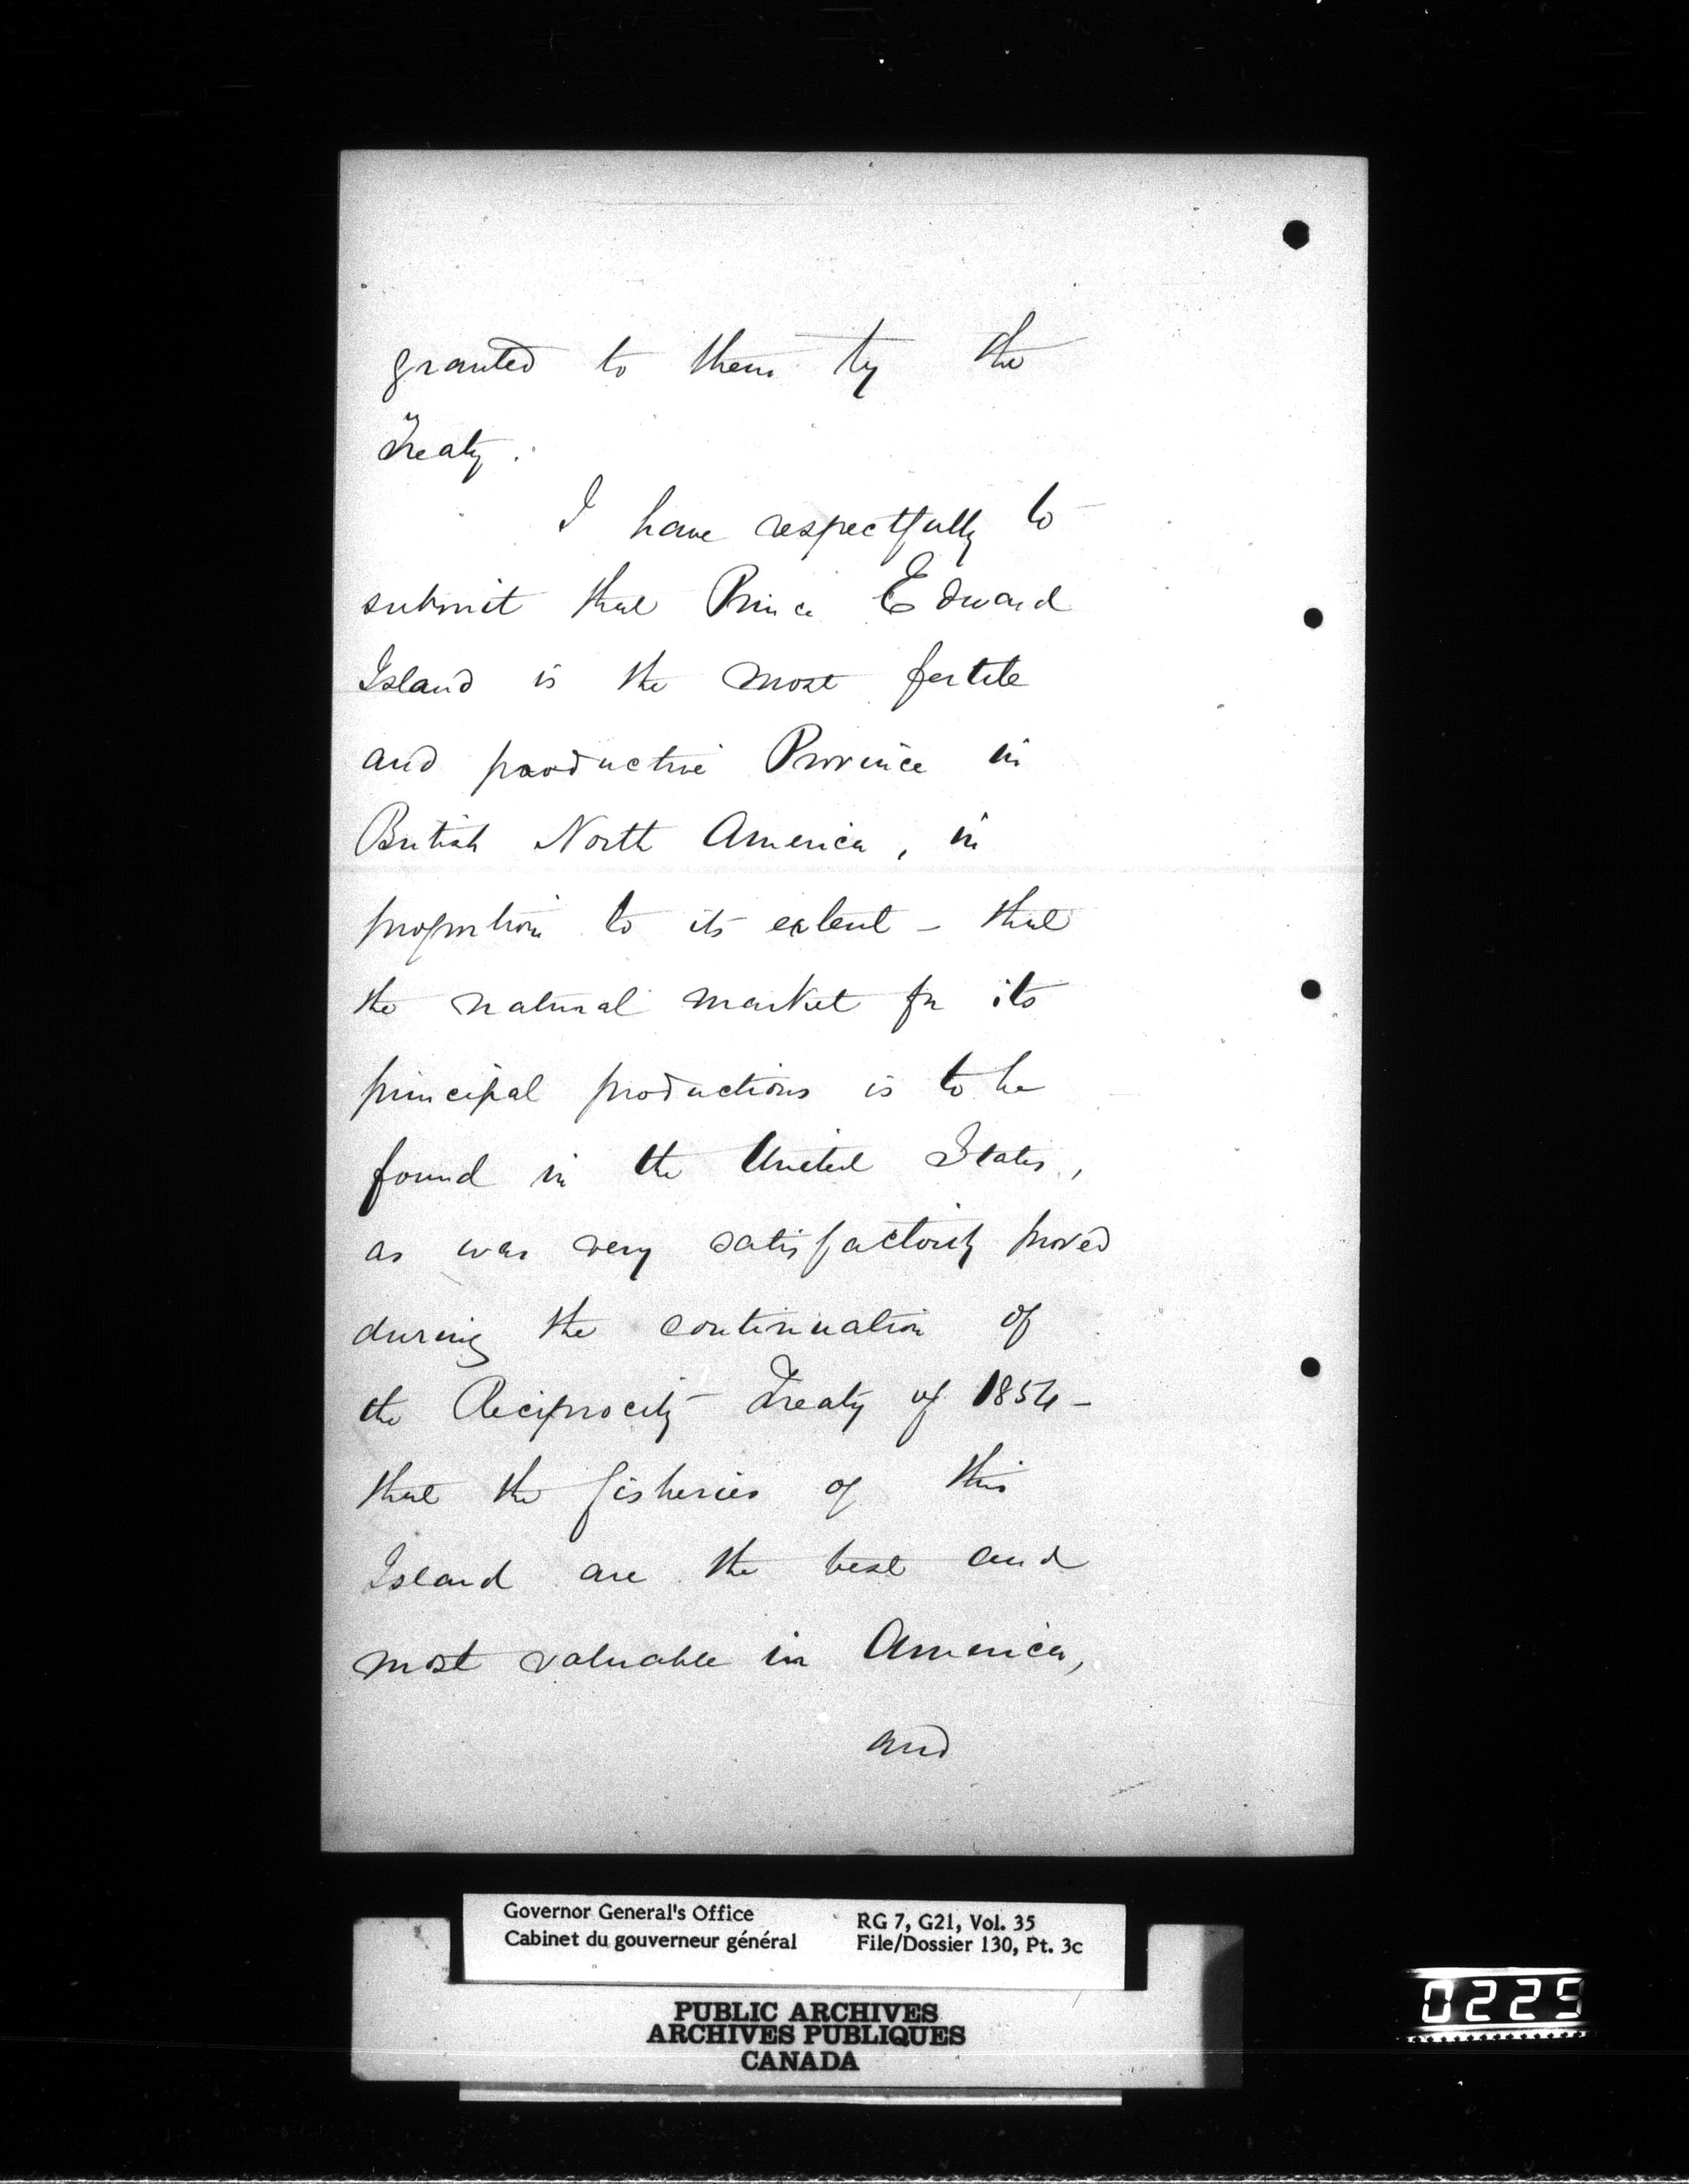 granted to them by the
Treaty.
I have respectfully to
submit that Prince Edward
Island is the most fertile
and productive Province in
British North America, in
proportion to its extent - that
the natural market for its
principal productions is to be
found in the United States,
as was very satisfactorily proved
during the continuation of
the Reciprocity Treaty of 1854 -
that the fisheries of this
Island are the best and
most valuable in America,
and
Governor General's Office
Cabinet du gouverneur général
RG 7, G21, Vol. 35
File/Dossier 130, Pt. 3c
PUBLIC ARCHIVES
ARCHIVES PUBLIQUES
CANADA
0225